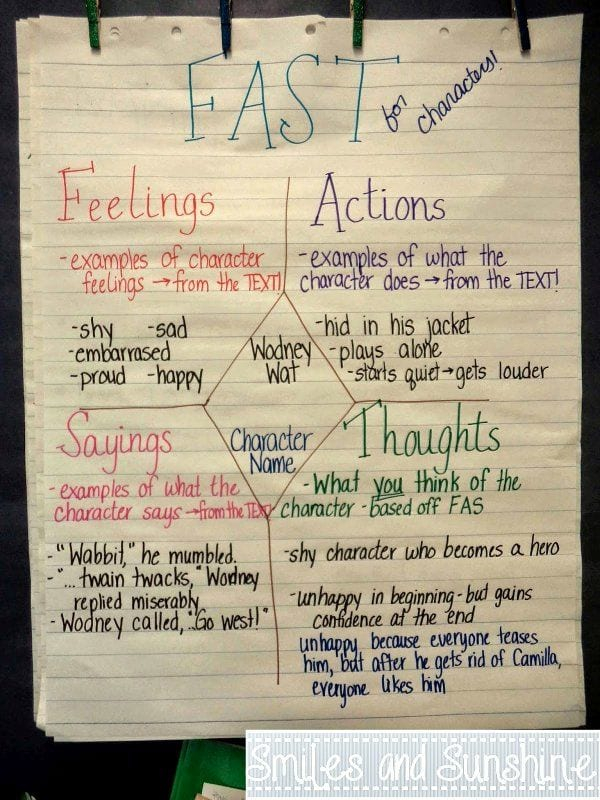 FAST for characters!
Feelings
-examples of character
feelings →from the TEXT!
-shy -sad
-embarrased
-proud -happy
Actions
-examples of what the
character does →from the TEXT!
-hid in his jacket
-plays alone
-starts quiet→gets louder
Wodney
Wat
Character
Name
Sayings
-examples of what the
character says →from the TEXT
-"Wabbit," he mumbled.
-"...twain twacks," Wodney
replied miserably
-Wodney called, "Go west!"
Thoughts
-What you think of the
character -based off FAS
-shy character who becomes a hero
-unhappy in beginning-but gains
confidence at the end
unhappy because everyone teases
him, but after he gets rid of Camilla,
everyone likes him
Smiles and Sunshine